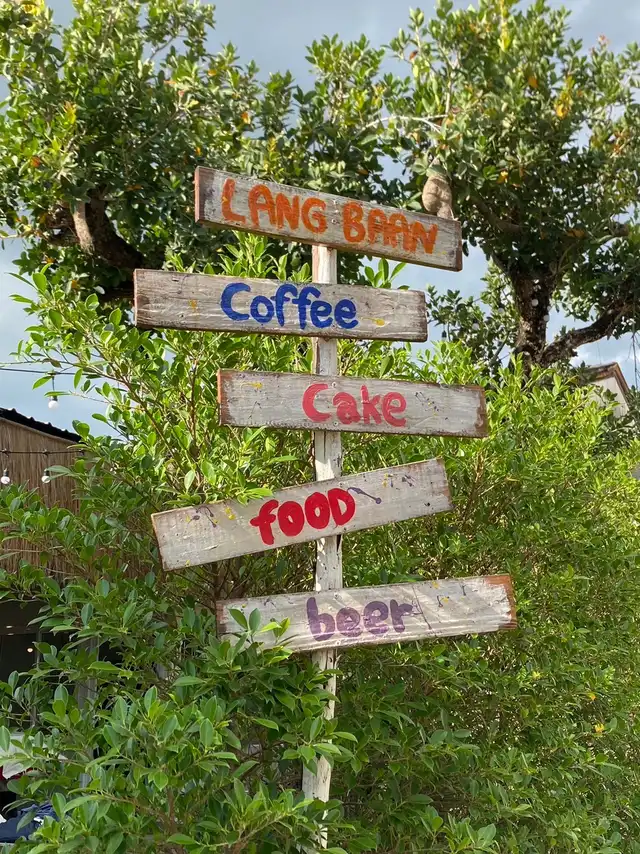 LANG BAAN
Coffee
Cake
fOOD
beer